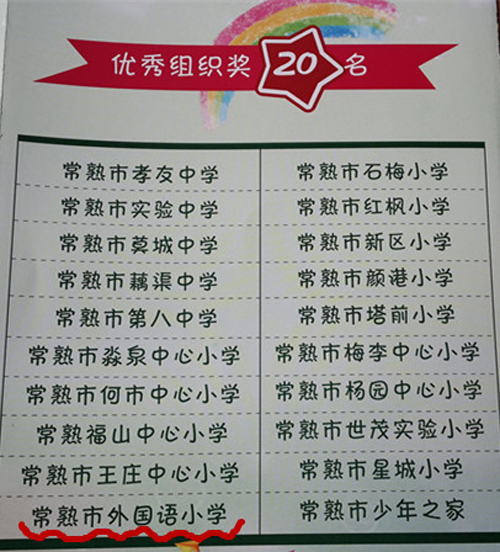 优秀组织奖 20 名
常熟市孝友中学
常熟市石梅小学
常熟市实验中学
常熟市红枫小学
常熟市莫城中学
常熟市新区小学
常熟市藕渠中学
常熟市颜港小学
常熟市第八中学
常熟市塔前小学
常熟市淼泉中心小学
常熟市梅李中心小学
常熟市何市中心小学
常熟市杨园中心小学
常熟福山中心小学
常熟市世茂实验小学
常熟市王庄中心小学
常熟市星城小学
常熟市外国语小学
常熟市少年之家